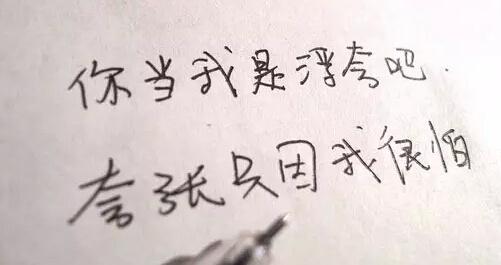 你当我是浮夸吧.
夸张只因我很怕